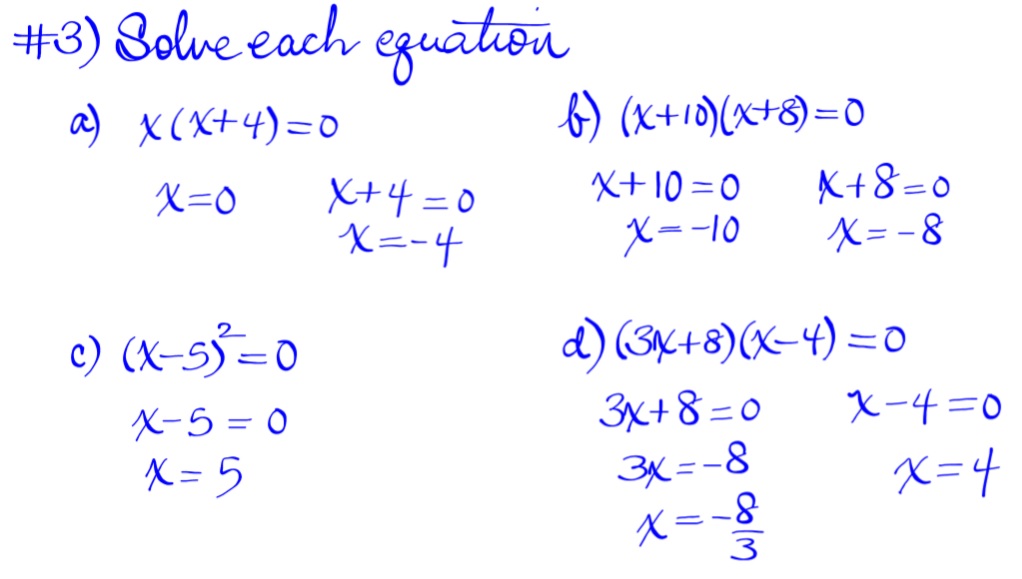 #3) Solve each equation
a) x(x+4)=0
x=0 x+4=0
x=-4
b) (x+10)(x+8)=0
x+10=0 x+8=0
x=-10 x=-8
c) (x-5)²=0
x-5=0
x=5
d) (3x+8)(x-4)=0
3x+8=0 x-4=0
3x=-8 x=4
x=-8/3